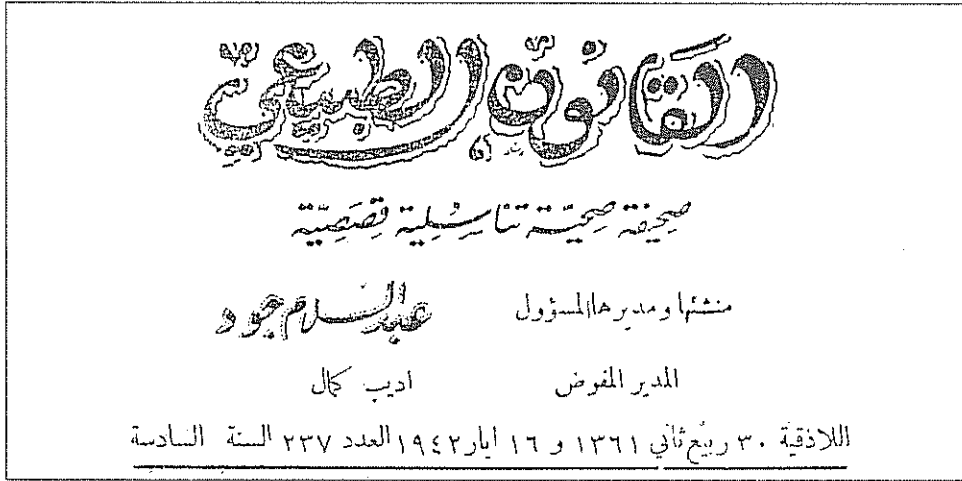 القانون الطبيعي
صحيفة صحيّة تناسُلية قِصَصِيّة
منشئها ومديرها المسؤول عبد السلام جود
المدير المفوض اديب كمال
اللاذقية ٣٠ ربيع ثاني ١٣٦١ و ١٦ ايار ١٩٤٢ العدد ٢٣٧ السنة السادسة